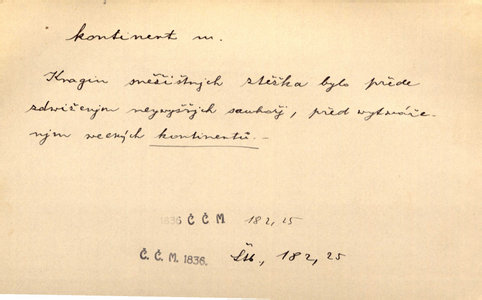 kontinent m.
Kragin sněžistných ztěžka bylo přede
zdwiženjm neywyšších sauhořj, před wytwáře-
njm weckých kontinentů. –
1836 Č Č M 182, 25
Č. Č. M. 1836. 182, 25